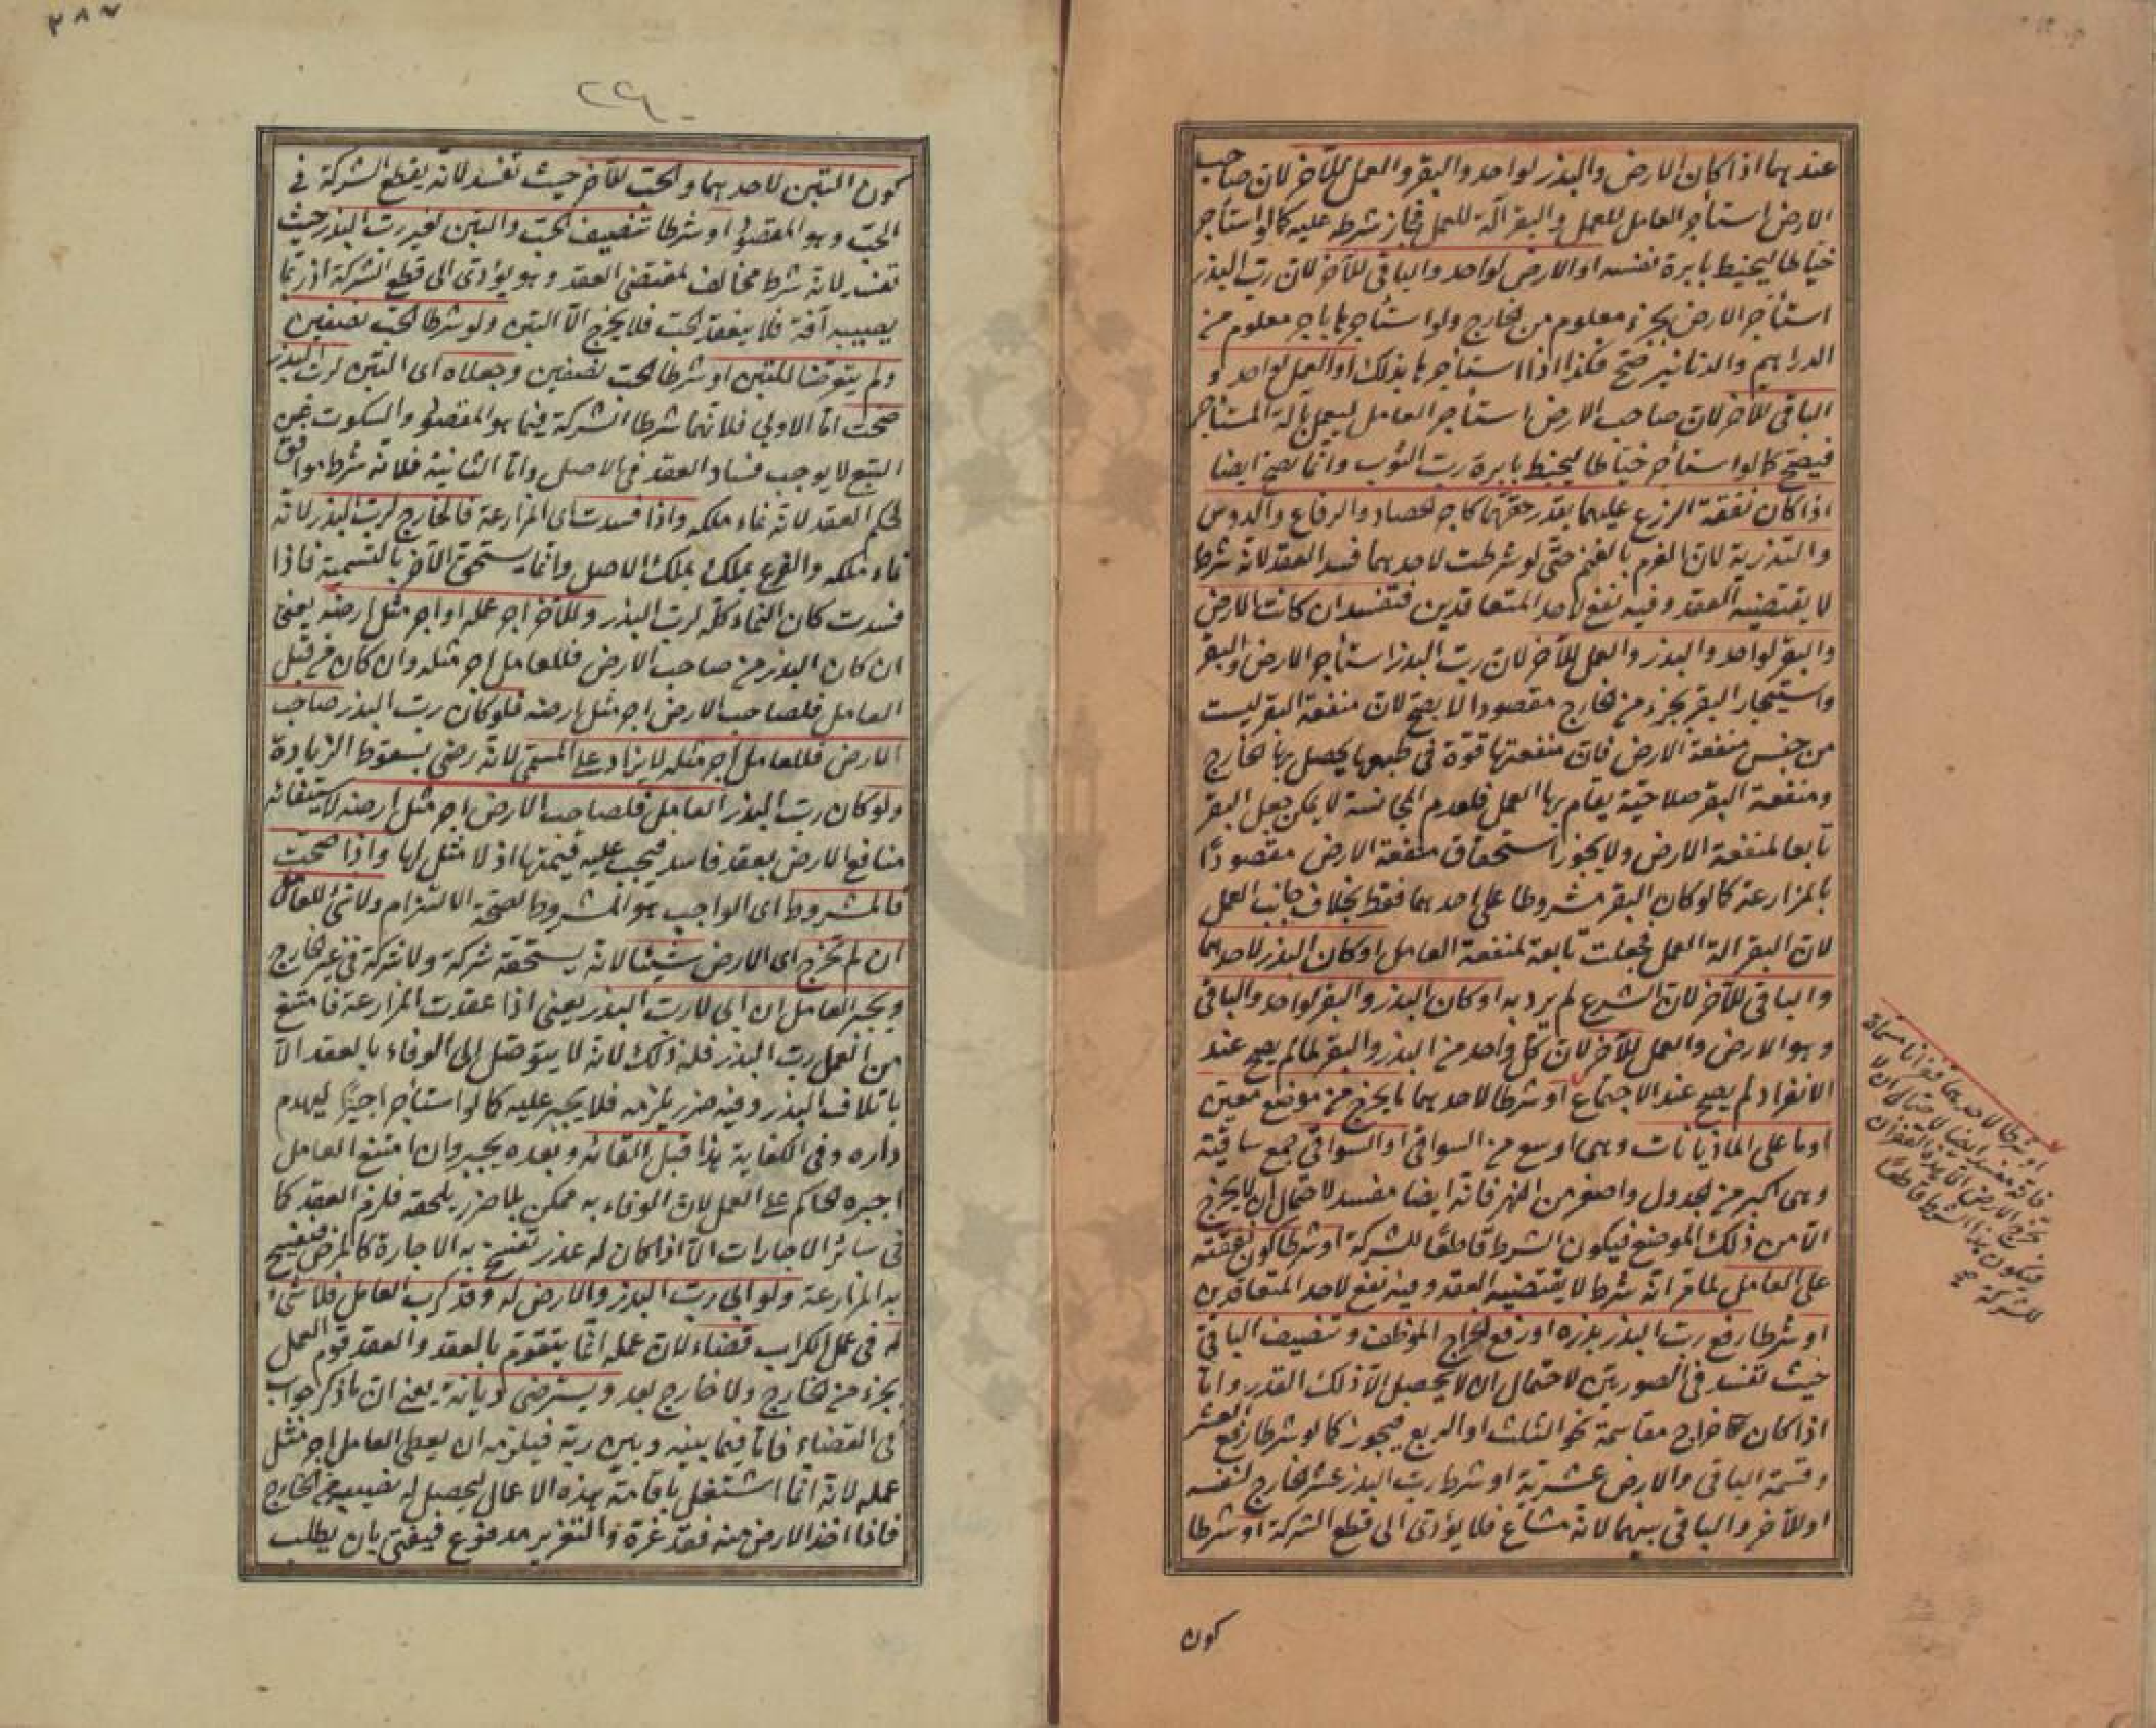 عندهما اذا كان الارض والبذر لواحد والبقر والعمل للآخر لان صاحب
الارض استأجر العامل للعمل والبقر آلة للعمل فجاز شرطه عليه كما لو استأجر
خياطا ليخيط بابرة نفسه او الارض لواحد والباقى للآخر لان رب البذر
استأجر الارض بجزء معلوم من الخارج ولو استأجرها باجر معلوم من
الدراهم والدنانير صح فكذا اذا استأجرها بذلك او العمل لواحد و
الباقى للآخر لان صاحب الارض استأجر العامل ليعمل بآلة المستأجر
فيصح كما لو استأجر خياطا ليخيط بابرة رب الثوب وانما يصح ايضا
اذا كان نفقة الزرع عليهما بقدر حقهما كاجر الحصاد والرفاع والدوس
والتذرية لان الغرم بالغنم حتى لو شرطت لاحدهما فسد العقد لانه شرط
لا يقتضيه العقد وفيه نفع لاحد المتعاقدين فتفسد ان كانت الارض
والبقر لواحد والبذر والعمل للآخر لان رب البذر استأجر الارض والبقر
واستيجار البقر بجزء من الخارج مقصودا لا يصح لان منفعة البقر ليست
من جنس منفعة الارض فان منفعتها قوة فى طبعها يحصل بها الخارج
ومنفعة البقر صلاحية يقام بها العمل فلعدم المجانسة لا يمكن جعل البقر
تابعا لمنفعة الارض ولا يجوز استحقاق منفعة الارض مقصودا
بالمزارعة كما لو كان البقر مشروطا على احدهما فقط بخلاف جانب العمل
لان البقر آلة العمل فجعلت تابعة لمنفعة العامل او كان البذر لاحدهما
والباقى للآخر لان الشرع لم يرد به او كان البذر والبقر لواحد والباقى
وهو الارض والعمل للآخر لان كل واحد من البذر والبقر لما لم يصح عند
الانفراد لم يصح عند الاجتماع او شرطا لاحدهما ما يخرج من موضع معين
او ما على الماذيانات وهى اوسع من السواقى او السواقى جمع ساقية
وهى اكبر من الجدول واصغر من النهر فانه ايضا مفسد لاحتمال ان لا يخرج
الا من ذلك الموضع فيكون الشرط قاطعا للشركة او شرطا كون نفقته
على العامل لما مر انه شرط لا يقتضيه العقد وفيه نفع لاحد المتعاقدين
او شرطا رفع رب البذر بذره او رفع الخراج الموظف وتنصيف الباقى
حيث تفسد فى الصورتين لاحتمال ان لا يحصل الا ذلك القدر واما
اذا كان خراج مقاسمة نحو الثلث او الربع فيجوز كما لو شرطا رفع العشر
وقسمة الباقى والارض عشرية او شرط رب البذر عشر الخارج لنفسه
او للآخر والباقى بينهما لانه مشاع فلا يؤدى الى قطع الشركة او شرطا
كون
او شرطا لاحدهما قفزانا مسماة
فانه مفسد ايضا لاحتمال ان لا
تخرج الارض الا هذه القفزان
فيكون هذا الشرط قاطعا
للشركة
٢٩٠
كون التبن لاحدهما والحب للآخر حيث تفسد لانه يقطع الشركة فى
الحب وهو المقصود او شرطا تنصيف الحب والتبن لغير رب البذر حيث
تفسد لانه شرط مخالف لمقتضى العقد وهو يؤدى الى قطع الشركة اذ ربما
يصيبه آفة فلا ينعقد الحب فلا يخرج الا التبن ولو شرطا الحب نصفين
ولم يتعرضا للتبن او شرطا الحب نصفين وجعلاه اى التبن لرب البذر
صحت اما الاولى فلانهما شرطا الشركة فيما هو المقصود والسكوت عن
التبع لا يوجب فساد العقد فى الاصل واما الثانية فلانه شرط موافق
لحكم العقد لانه نماء ملكه واذا فسدت اى المزارعة فالخارج لرب البذر لانه
نماء ملكه والفرع يملك بملك الاصل وانما يستحق الآخر بالتسمية فاذا
فسدت كان النماء كله لرب البذر وللآخر اجر عمله او اجر مثل ارضه يعنى
ان كان البذر من صاحب الارض فللعامل اجر مثله وان كان من قبل
العامل فلصاحب الارض اجر مثل ارضه فلو كان رب البذر صاحب
الارض فللعامل اجر مثله لا يزاد على المسمى لانه رضى بسقوط الزيادة
ولو كان رب البذر العامل فلصاحب الارض اجر مثل ارضه لاستيفائه
منافع الارض بعقد فاسد فيجب عليه قيمتها اذ لا مثل لها واذا صحت
فالمشروط اى الواجب هو المشروط لصحة الالتزام ولا شئ للعامل
ان لم تخرج اى الارض شيئا لانه يستحقه شركة ولا شركة فى غير الخارج
ويجبر العامل ان ابى لا رب البذر يعنى اذا عقدت المزارعة فامتنع
من العمل رب البذر فله ذلك لانه لا يتوصل الى الوفاء بالعقد الا
باتلاف البذر وفيه ضرر يلزمه فلا يجبر عليه كما لو استأجر اجيرا ليهدم
داره وفى الكفاية هذا قبل القائه وبعده يجبر وان امتنع العامل
اجبره الحاكم على العمل لان الوفاء به ممكن بلا ضرر يلحقه فلزم العقد كما
فى سائر الاجارات الا اذا كان له عذر تفسخ به الاجارة كالمرض فتفسخ
به المزارعة ولو ابى رب البذر والارض له وقد كرب العامل فلا شئ
له فى عمل الكراب قضاء لان عمله انما يتقوم بالعقد والعقد قوم العمل
بجزء من الخارج ولا خارج بعد ويسترضى ديانة يعنى ان ما ذكر جواب
فى القضاء فاما فيما بينه وبين ربه فيلزمه ان يعطى العامل اجر مثل
عمله لانه انما اشتغل باقامة هذه الاعمال ليحصل له نصيبه من الخارج
فاذا اخذ الارض منه فقد غره والتغرير مدفوع فيفتى بان يطلب